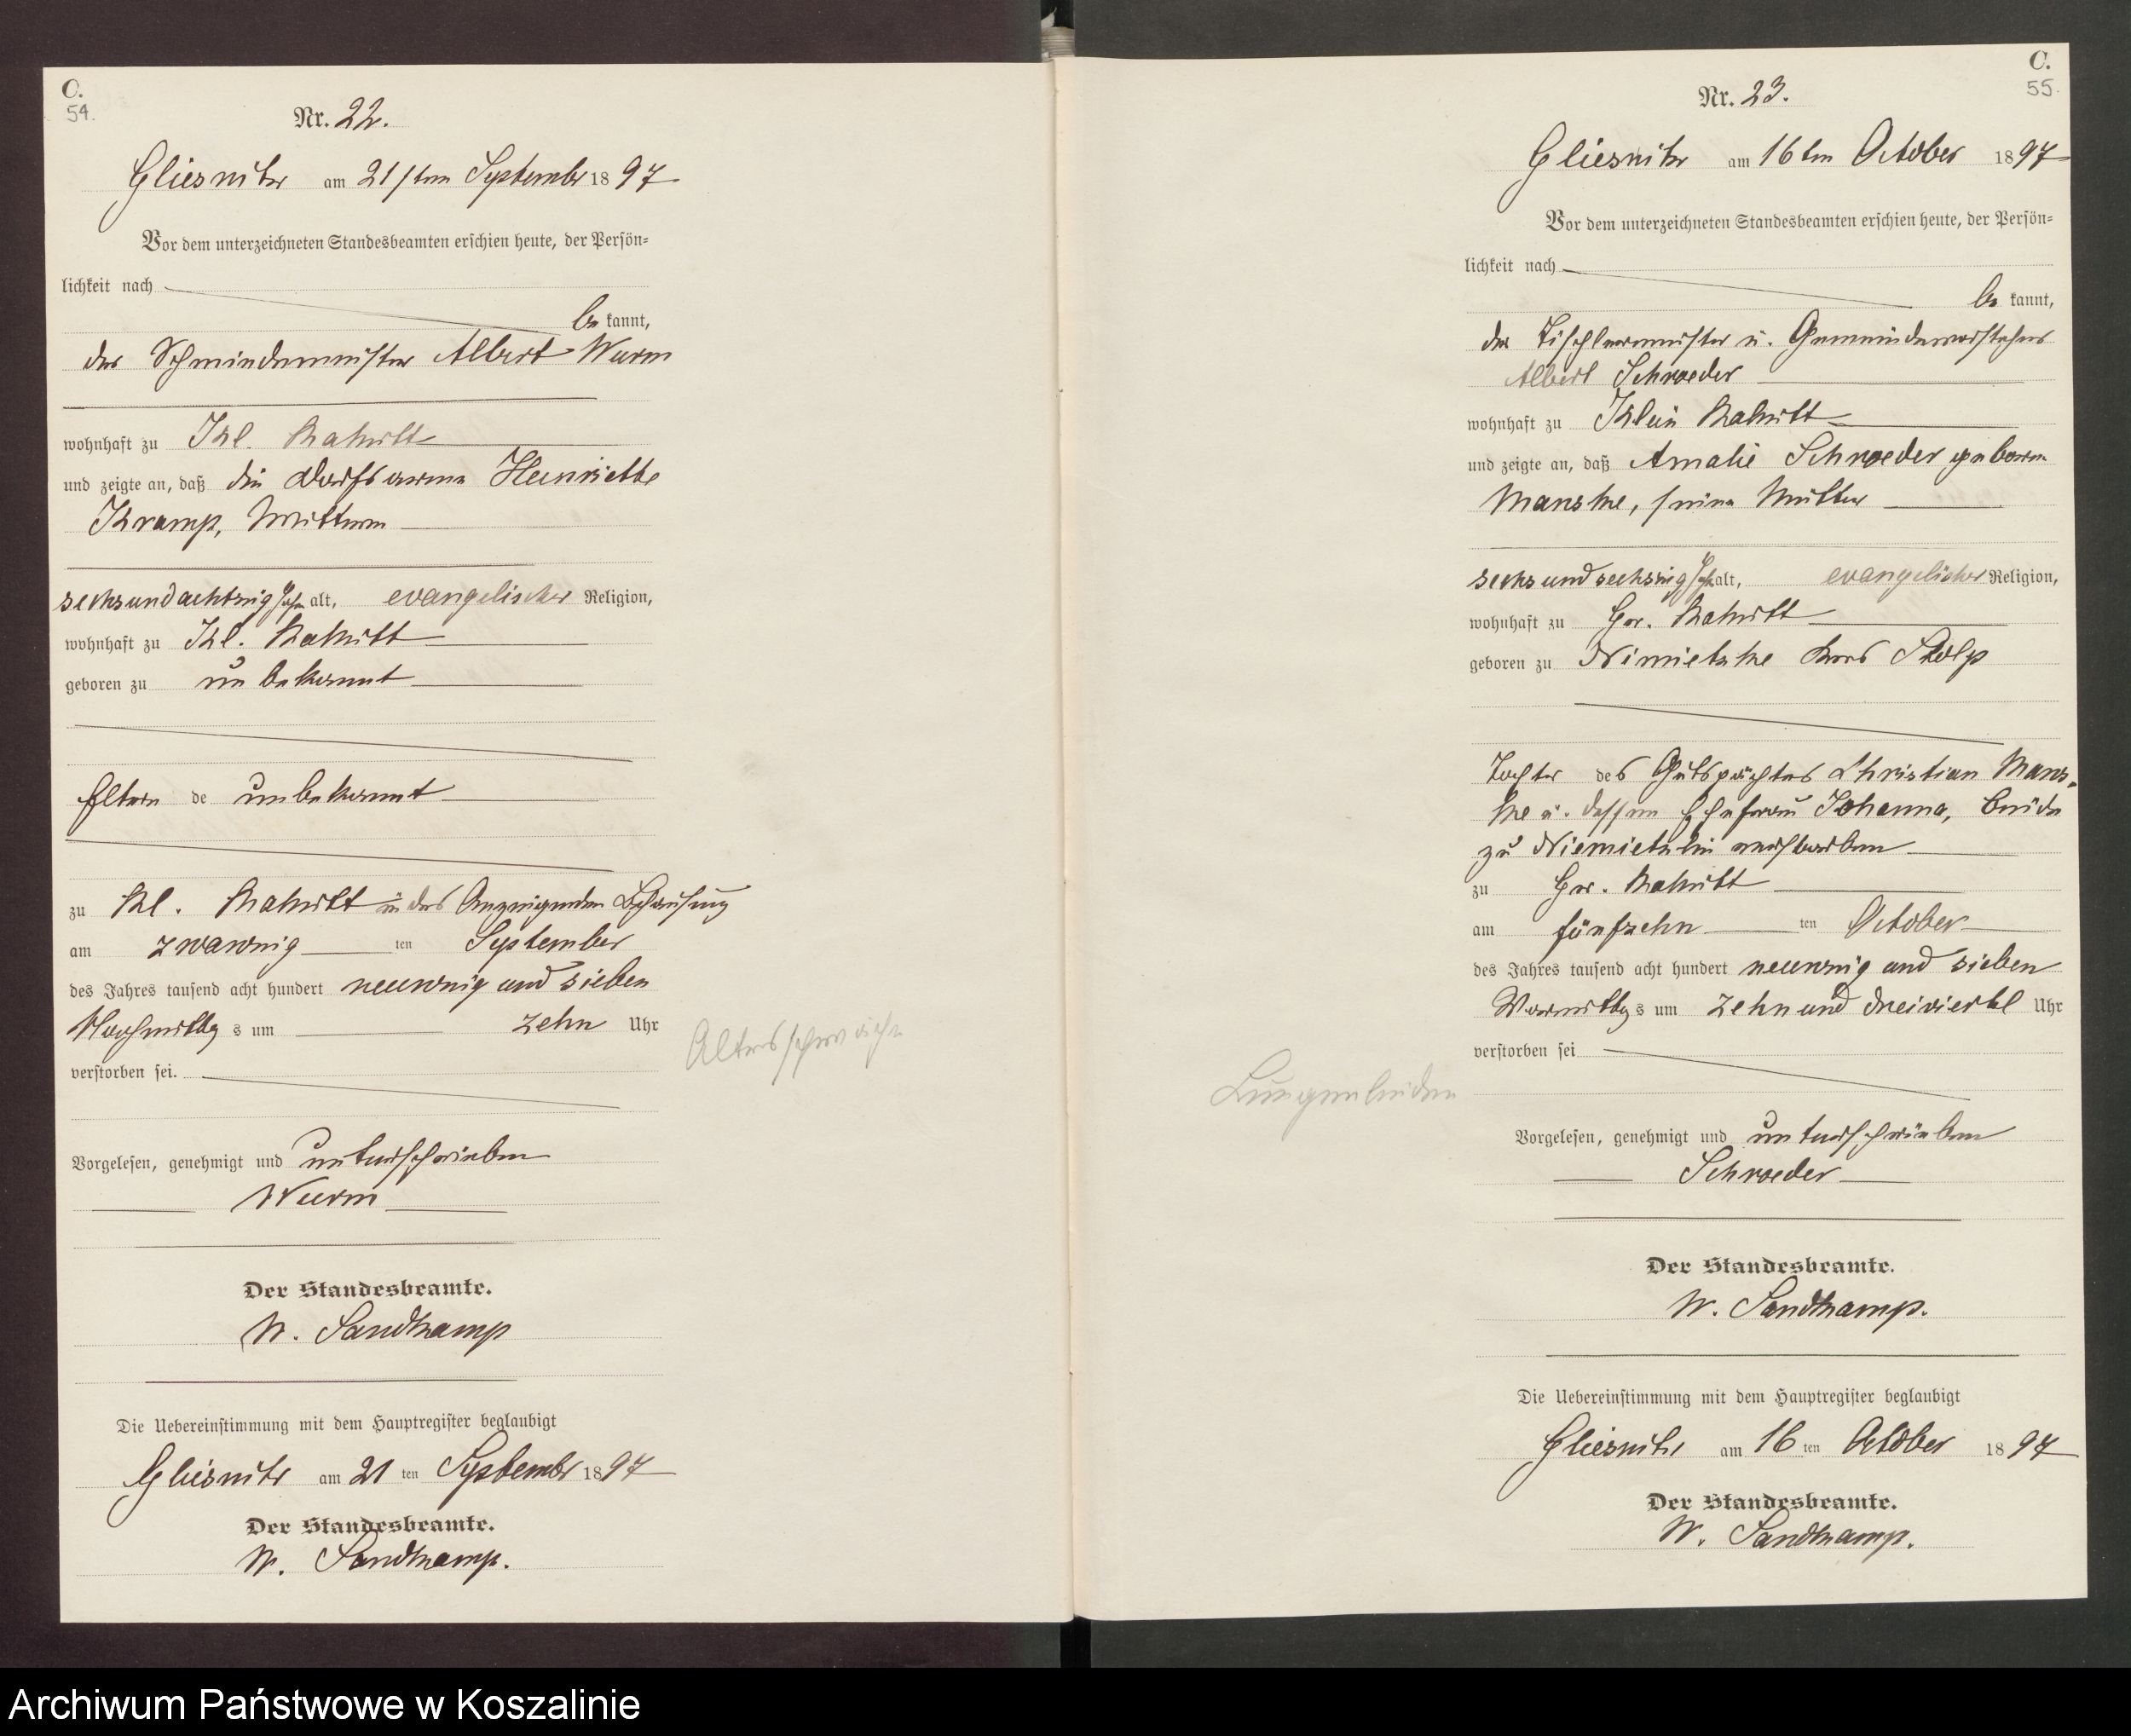 C.
54.
Nr. 22.
Gliesnitz am 21sten September 1897
Vor dem unterzeichneten Standesbeamten erschien heute, der Persön-
lichkeit nach
be kannt,
der Schmiedemeister Albert Wurm
wohnhaft zu Kl. Rakitt
und zeigte an, daß die Dorfsarme Henriette
Kramp, Wittwe
sechsundachtzig Jahr alt, evangelischer Religion,
wohnhaft zu Kl. Rakitt
geboren zu unbekannt
Eltern de unbekannt
zu Kl. Rakitt in des Anzeigenden Behausung
am zwanzig ten September
des Jahres tausend acht hundert neunzig und sieben
Nachmittag s um zehn Uhr
verstorben sei.
Altersschwäche
Vorgelesen, genehmigt und unterschrieben
Wurm
Der Standesbeamte.
W. Sandkamp
Die Uebereinstimmung mit dem Hauptregister beglaubigt
Gliesnitz am 21 ten September 1897
Der Standesbeamte.
W. Sandkamp.
C.
55.
Nr. 23.
Gliesnitz am 16ten October 1897
Vor dem unterzeichneten Standesbeamten erschien heute, der Persön-
lichkeit nach
be kannt,
der Tischlermeister u. Gemeindevorsteher
Albert Schroeder
wohnhaft zu Klein Rakitt
und zeigte an, daß Amalie Schroeder geborene
Manske, seine Mutter
sechsundsechzig Jahr alt, evangelischer Religion,
wohnhaft zu Gr. Rakitt
geboren zu Nimietzke Kreis Stolp
Tochter des Gutspächters Christian Mans-
ke u. dessen Ehefrau Johanna, beide
zu verstorben
zu Gr. Rakitt
am fünfzehn ten October
des Jahres tausend acht hundert neunzig und sieben
Vormittag s um zehn und dreiviertel Uhr
verstorben sei
Lungenleiden
Vorgelesen, genehmigt und unterschrieben
Schroeder
Der Standesbeamte.
W. Sandkamp.
Die Uebereinstimmung mit dem Hauptregister beglaubigt
Gliesnitz am 16 ten October 1897
Der Standesbeamte.
W. Sandkamp.
Archiwum Państwowe w Koszalinie